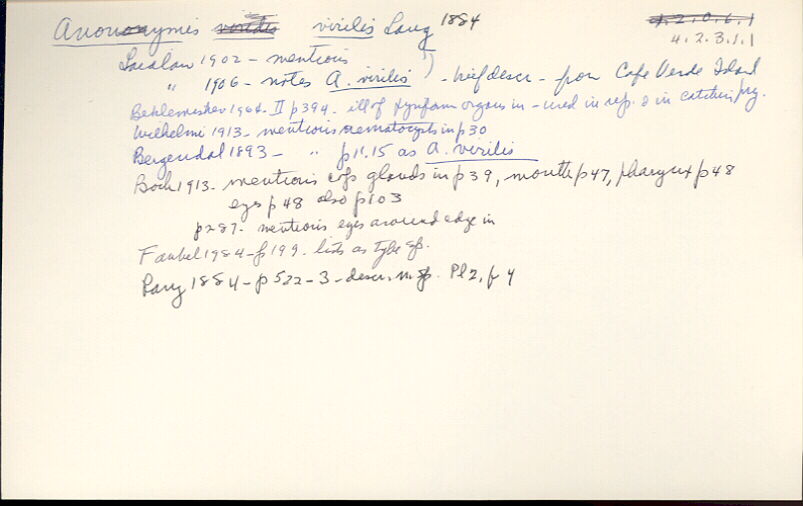 Anonymus virilis Lang 1884
4.2.3.1.1
Laidlaw 1902 - mentions
" 1906 - notes A. virilis - brief descr - from Cape Verde Island
Beklemishev 1964. II p394 - ill of pyriform organs in - used in rep. & in catching prey.
Wilhelmi 1913 - mentions nematocysts in p30
Bergendal 1893 - " p15 as A. virilis
Bock 1913 - mentions cop glands in p39, mouth p47, pharynx p48
eyes p48 also p103
p287 - mentions eyes around edge in
Faubel 1984 - p199. lists as type sp.
Lang 1884 - p522-3 - descr. n. sp. Pl 2, f 4